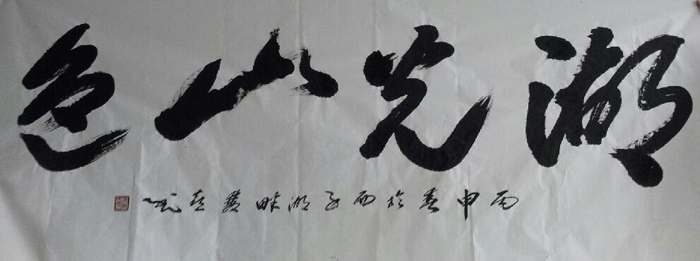 湖光山色
丙申春於西子湖畔龚喜